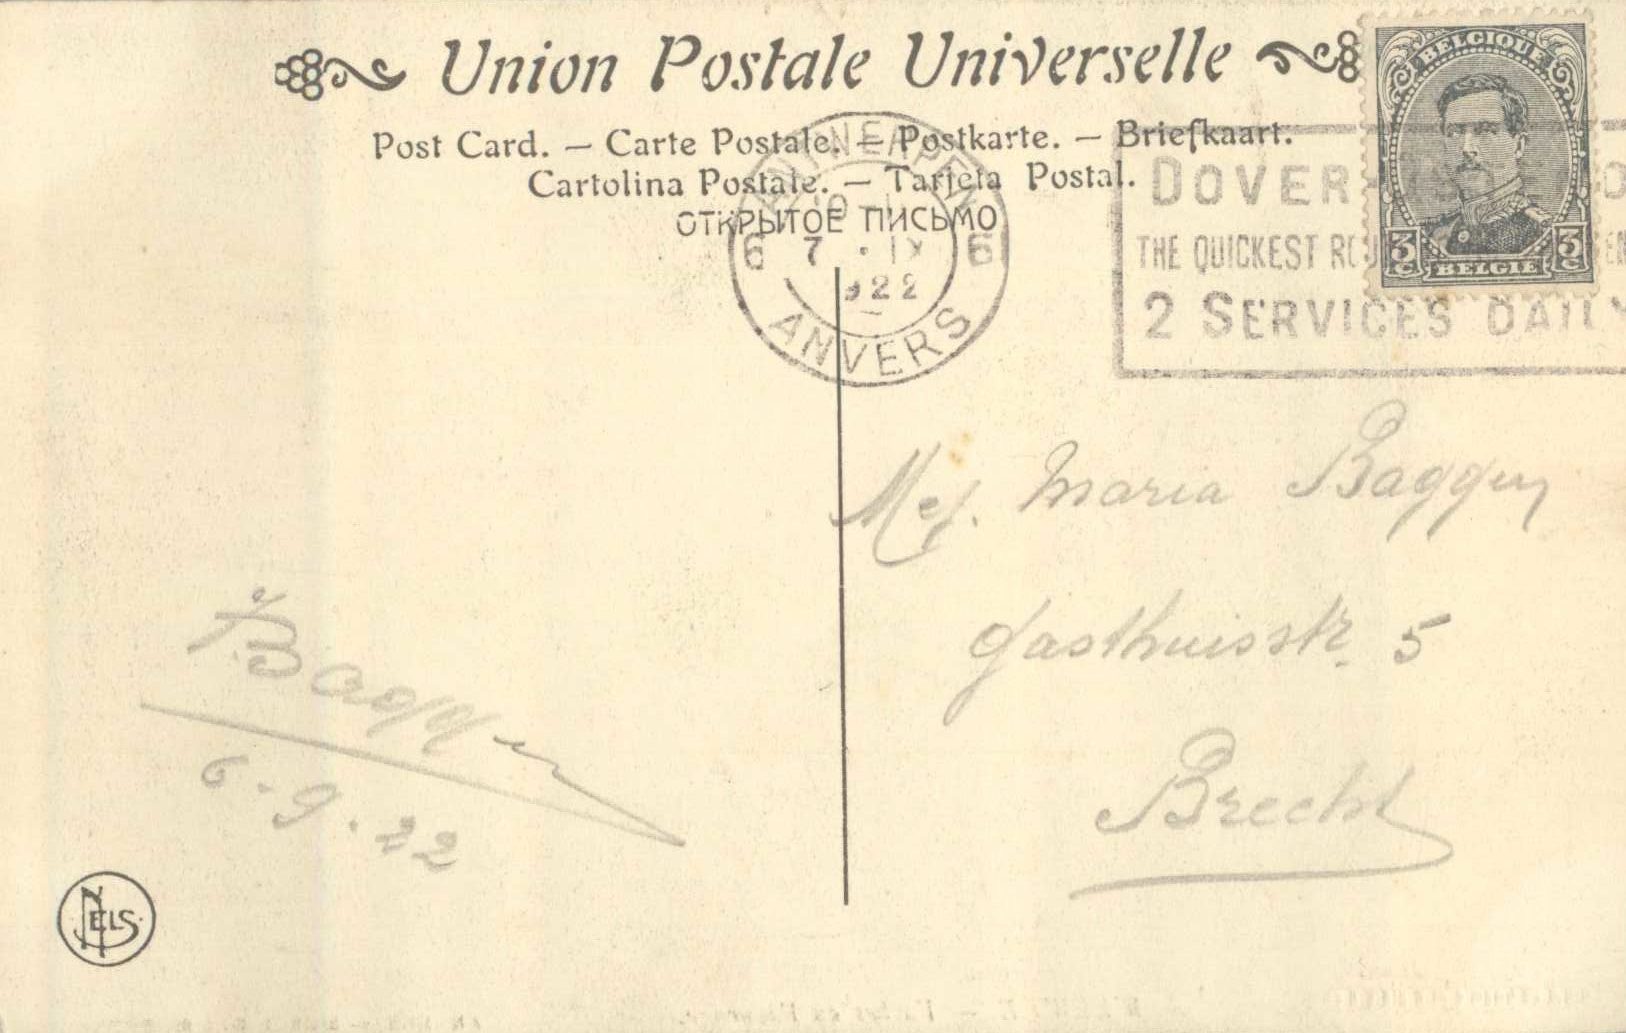 Union Postale Universelle
Post Card. — Carte Postale. — Postkarte. — Briefkaart.
Cartolina Postale. — Tarjeta Postal.
ОТКРЫТОЕ ПИСЬМО
BELGIQUE
3 C BELGIE 3 C
ANTWERPEN
6 7 · IX 6
1922
ANVERS
DOVER
THE QUICKEST
2 SERVICES DAILY
Mej. Maria Baggen
Gasthuisstr. 5
Brecht
Baggen
6-9.22
NELS